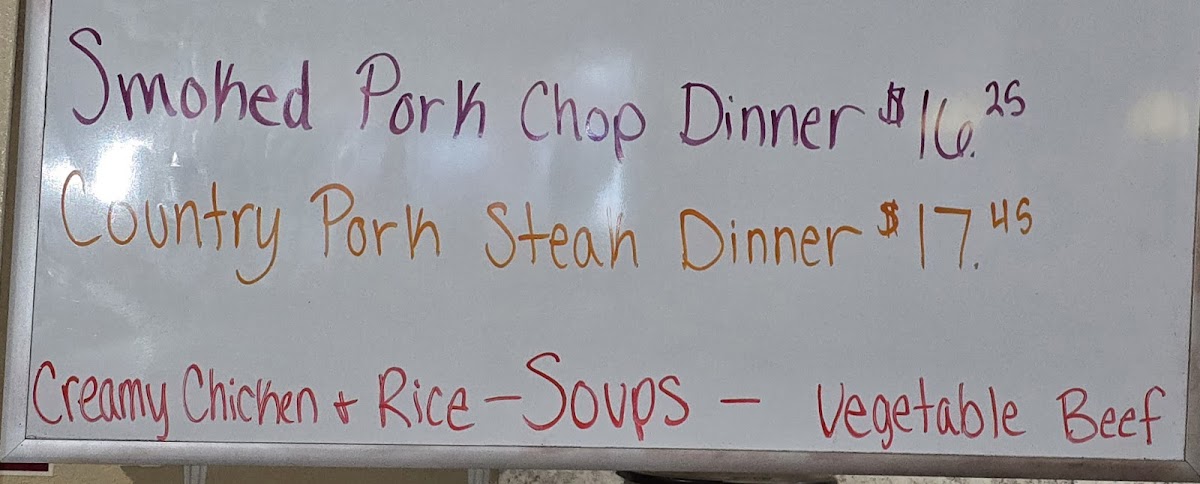 Smoked Pork Chop Dinner $16.25
Country Pork Steak Dinner $17.45
Creamy Chicken + Rice - Soups - Vegetable Beef